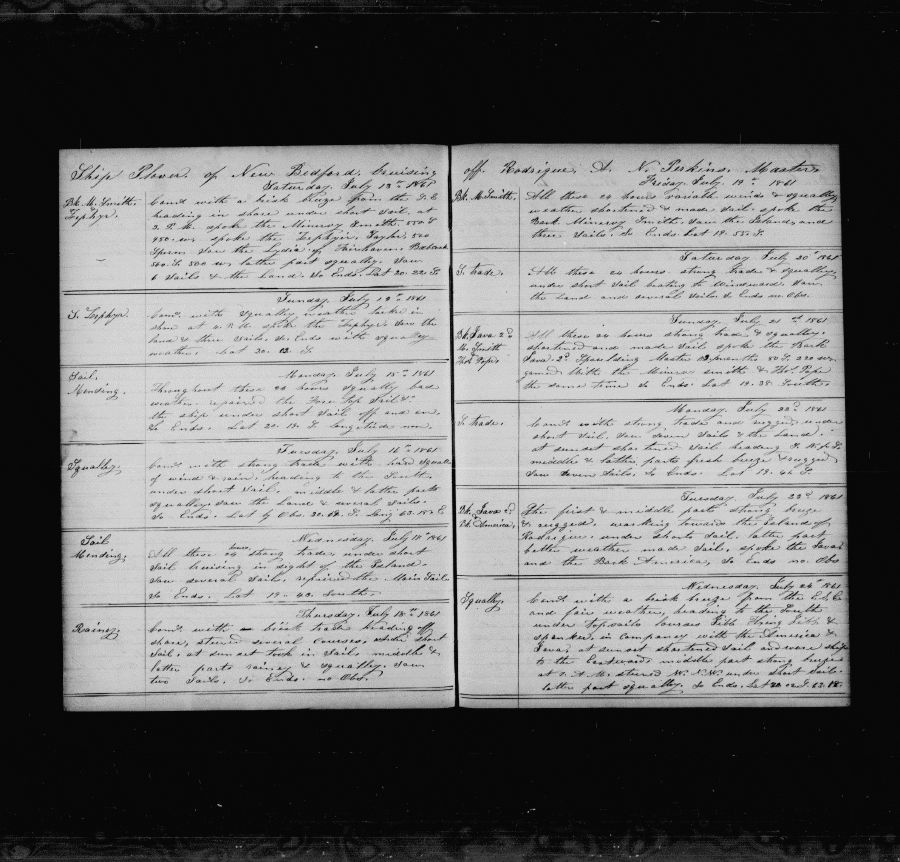 Ship Plover of New Bedford Cruising
Saturday July 13th 1861
Bk M. Smith.
Zephyr.
Com'd with a brisk breeze from the S. E
heading in shore under short sail, at
2. P. M. spoke the Minerva Smith 550 S
950. w, spoke the Zephyr, Taylor, 500
Sperm saw the Lydia of Fairhaven, Babcock
500. S. 500 w, latter part squally. saw
6 Sails & the land. So Ends Lat 20. 22. S
Sunday July 14th 1861
S. Zephyr
Com'd with squally weather tacked in
shore at 4. P. M. spoke the Zephyr. saw the
land & three sails. So Ends with squally
weather. Lat 20. 12 S
Monday July 15th 1861
Sail
Mending.
Throughout these 24 hours squally bad
weather repaired the Fore Top Sail &c
the ship under short sail off and on.
So Ends. Lat 20. S. Longitude non.
Tuesday July 16th 1861
Squally.
Com'd with strong trade with hard squalls
of wind & rain, heading to the South,
under short sail, middle & latter parts
squally. saw the land & several sails.
So Ends. Lat by Obs. 20. S. Long 63. E
Wednesday July 17th 1861
Sail
Mending.
All these 24 hours strong trade, under short
sail cruising in sight of the Island.
saw several sails. repaired the Main Sail
So Ends. Lat 19. 43. South.
Thursday July 18th 1861
Rainy
Com'd. with brisk trade heading off
shore, steered several courses, under short
sail. at sunset took in sail. middle &
latter parts rainy & squally. saw
two sails. So Ends. no Obs.
off Rodrigue, A. N. Perkins, Master
Friday July 19th 1861
Bk. M. Smith.
All these 24 hours variable winds & squally
weather shortened & made sail spoke the
Bark Minerva Smith. saw the Island, and
three sails. So Ends Lat 19. 55. S.
Saturday July 20th 1861
S. trade.
All these 24 hours strong trade & squally.
under short sail beating to windward saw
the Land and several sails So Ends no Obs.
Sunday July 21st 1861
Bk. Java 2d
M. Smith
Thos Pope
All these 24 hours strong trade & squally.
shortened and made sail spoke the Bark
Java 2d Spaulding Master months 80 S. 220 w
gamed With the Minerva Smith & Thos. Pope
the same time So Ends. Lat 19. 38. South.
Monday July 22d 1861
S. trade.
Com'd. with strong trade and rugged, under
short sail. saw seven sails & the Land.
at sunset shortened sail heading
middle & latter parts fresh breeze & rugged
saw seven sails. So Ends. Lat 19. 44 S.
Tuesday July 23d 1861
Bk. Java 2d
Bk America,
The first & middle parts strong breeze
& rugged. working toward the Island of
Rodrigue. under short sail. latter part
better weather made sail, spoke the Java
and the Bark America, So Ends no Obs
Wednesday July 24th 1861
Squally
Com'd with a brisk breeze from the E.
and fair weather, heading to the South
under topsails courses Jibb Flying Jibb &
spanker, in company with the America &
Java, at sunset shortened sail and wore ship
to the Eastward. middle part strong breeze
at A. M. steered under short sail.
latter part squally. So Ends. Lat 20 S. 63.